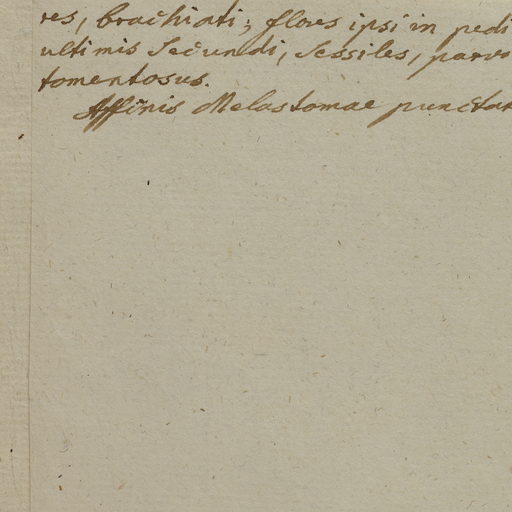 res, brachiati; flores ipsi in pedi
ultimis Secundi, Sessiles, parv
tomentosus.
Affinis Melastomae punctat